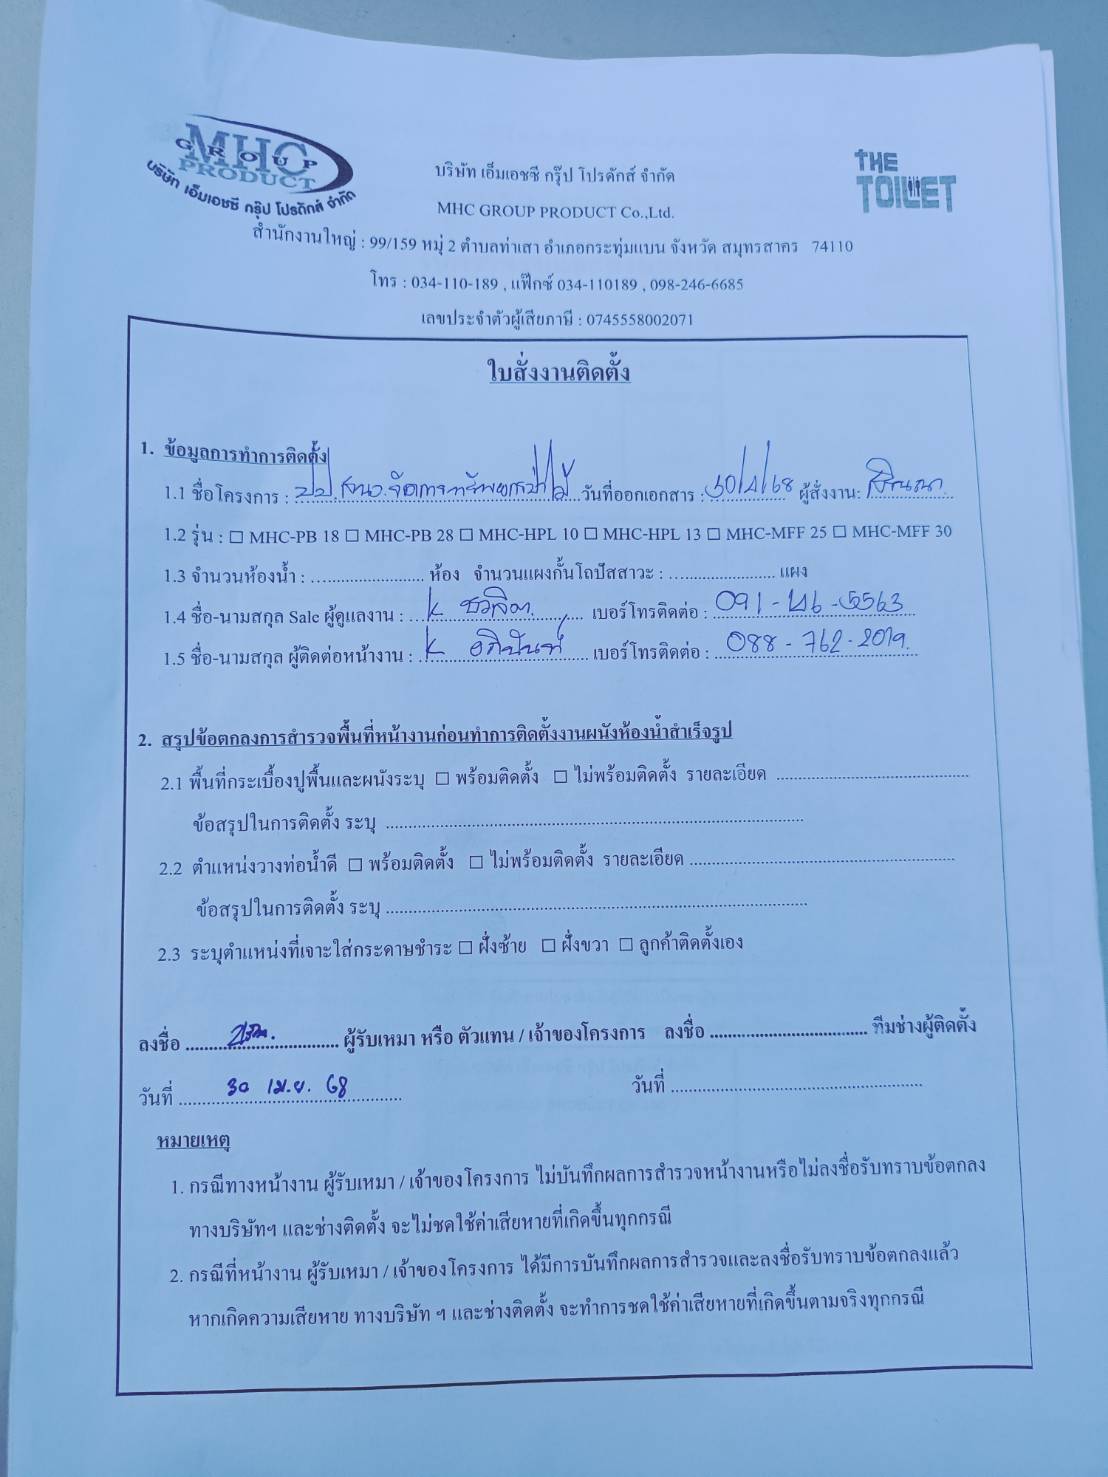 MHC
GROUP
PRODUCT
บริษัท เอ็มเอชซี กรุ๊ป โปรดักส์ จำกัด
THE
TOILET
บริษัท เอ็มเอชซี กรุ๊ป โปรดักส์ จำกัด
MHC GROUP PRODUCT Co.,Ltd.
สำนักงานใหญ่ : 99/159 หมู่ 2 ตำบลท่าเสา อำเภอกระทุ่มแบน จังหวัด สมุทรสาคร 74110
โทร : 034-110-189 , แฟ็กซ์ 034-110189 , 098-246-6685
เลขประจำตัวผู้เสียภาษี : 0745558002071
ใบสั่งงานติดตั้ง
1. ข้อมูลการทำการติดตั้ง
1.1 ชื่อโครงการ : วันที่ออกเอกสาร : 30/4/68 ผู้สั่งงาน:
1.2 รุ่น : ☐ MHC-PB 18 ☐ MHC-PB 28 ☐ MHC-HPL 10 ☐ MHC-HPL 13 ☐ MHC-MFF 25 ☐ MHC-MFF 30
1.3 จำนวนห้องน้ำ : ......................... ห้อง จำนวนแผงกั้นโถปัสสาวะ : ........................ แผง
1.4 ชื่อ-นามสกุล Sale ผู้ดูแลงาน : K ชวลิต เบอร์โทรติดต่อ :
1.5 ชื่อ-นามสกุล ผู้ติดต่อหน้างาน : K อภินันท์ เบอร์โทรติดต่อ : 088-762-2019
2. สรุปข้อตกลงการสำรวจพื้นที่หน้างานก่อนทำการติดตั้งงานผนังห้องน้ำสำเร็จรูป
2.1 พื้นที่กระเบื้องปูพื้นและผนังระบุ ☐ พร้อมติดตั้ง ☐ ไม่พร้อมติดตั้ง รายละเอียด ..........................................
ข้อสรุปในการติดตั้ง ระบุ ............................................................................................
2.2 ตำแหน่งวางท่อน้ำดี ☐ พร้อมติดตั้ง ☐ ไม่พร้อมติดตั้ง รายละเอียด ..........................................................
ข้อสรุปในการติดตั้ง ระบุ ............................................................................................
2.3 ระบุตำแหน่งที่เจาะใส่กระดาษชำระ ☐ ฝั่งซ้าย ☐ ฝั่งขวา ☐ ลูกค้าติดตั้งเอง
ลงชื่อ .................................. ผู้รับเหมา หรือ ตัวแทน / เจ้าของโครงการ ลงชื่อ .................................. ทีมช่างผู้ติดตั้ง
วันที่ 30 เม.ย. 68 วันที่ ........................................................
หมายเหตุ
1. กรณีทางหน้างาน ผู้รับเหมา / เจ้าของโครงการ ไม่บันทึกผลการสำรวจหน้างานหรือไม่ลงชื่อรับทราบข้อตกลง
ทางบริษัทฯ และช่างติดตั้ง จะไม่ชดใช้ค่าเสียหายที่เกิดขึ้นทุกกรณี
2. กรณีที่หน้างาน ผู้รับเหมา / เจ้าของโครงการ ได้มีการบันทึกผลการสำรวจและลงชื่อรับทราบข้อตกลงแล้ว
หากเกิดความเสียหาย ทางบริษัท ฯ และช่างติดตั้ง จะทำการชดใช้ค่าเสียหายที่เกิดขึ้นตามจริงทุกกรณี